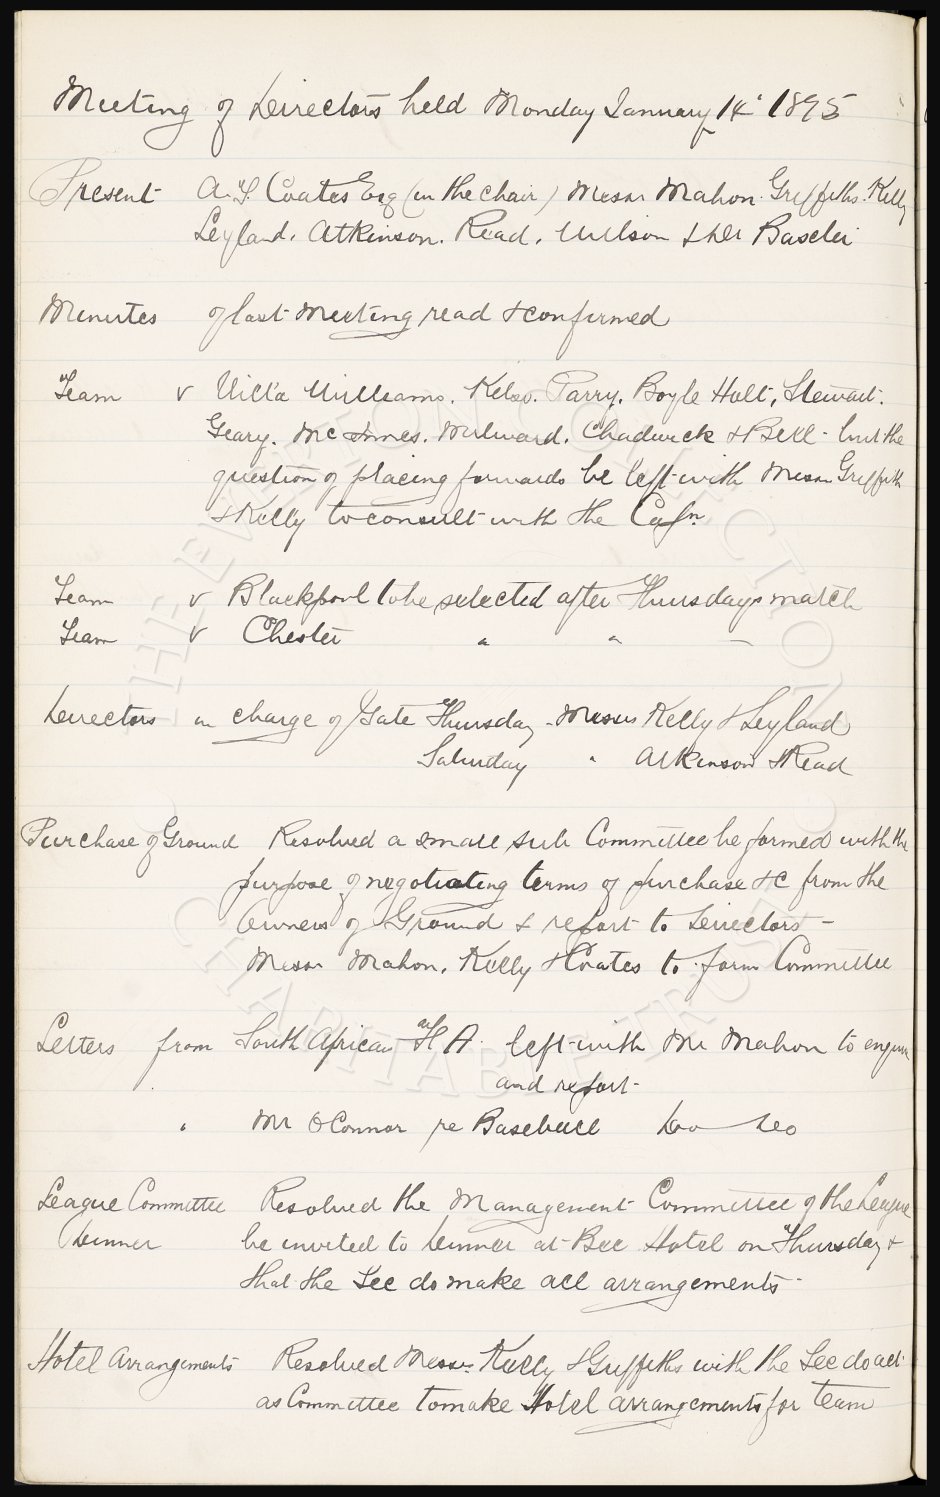 Meeting of Directors held Monday January 14th 1895
Present A.T. Coates Esq (in the chair) Messrs Mahon. Griffiths. Kelly
Leyland. Atkinson. Read. Wilson & Dr Baxter
Minutes of last meeting read & confirmed
Team v Villa Williams. Kelso. Parry. Boyle Holt. Stewart.
Geary. McInnes. Milward. Chadwick & Bell - but the
question of placing forwards be left with Messrs Griffith
& Kelly to consult with the Capn.
Team v Blackpool to be selected after Thursdays match
Team v Chester " " —
Directors in charge of Gate Thursday - Messrs Kelly & Leyland
Saturday " Atkinson & Read
Purchase of Ground Resolved a small sub Committee be formed with the
purpose of negotiating terms of purchase &c from the
Owners of Ground & report to Directors -
Messrs Mahon, Kelly & Coates to form Committee
Letters from South African FA. left with Mr Mahon to enquire
and report -
" Mr OConnor re Baseball Do Do
League Committee Resolved the Management Committee of the League
Dinner be invited to Dinner at Bee Hotel on Thursday &
that the Sec do make all arrangements -
Hotel Arrangements Resolved Messrs Kelly & Griffiths with the Sec do act
as Committee to make Hotel arrangements for team
THE EVERTON COLLECTION
CHARITABLE TRUST